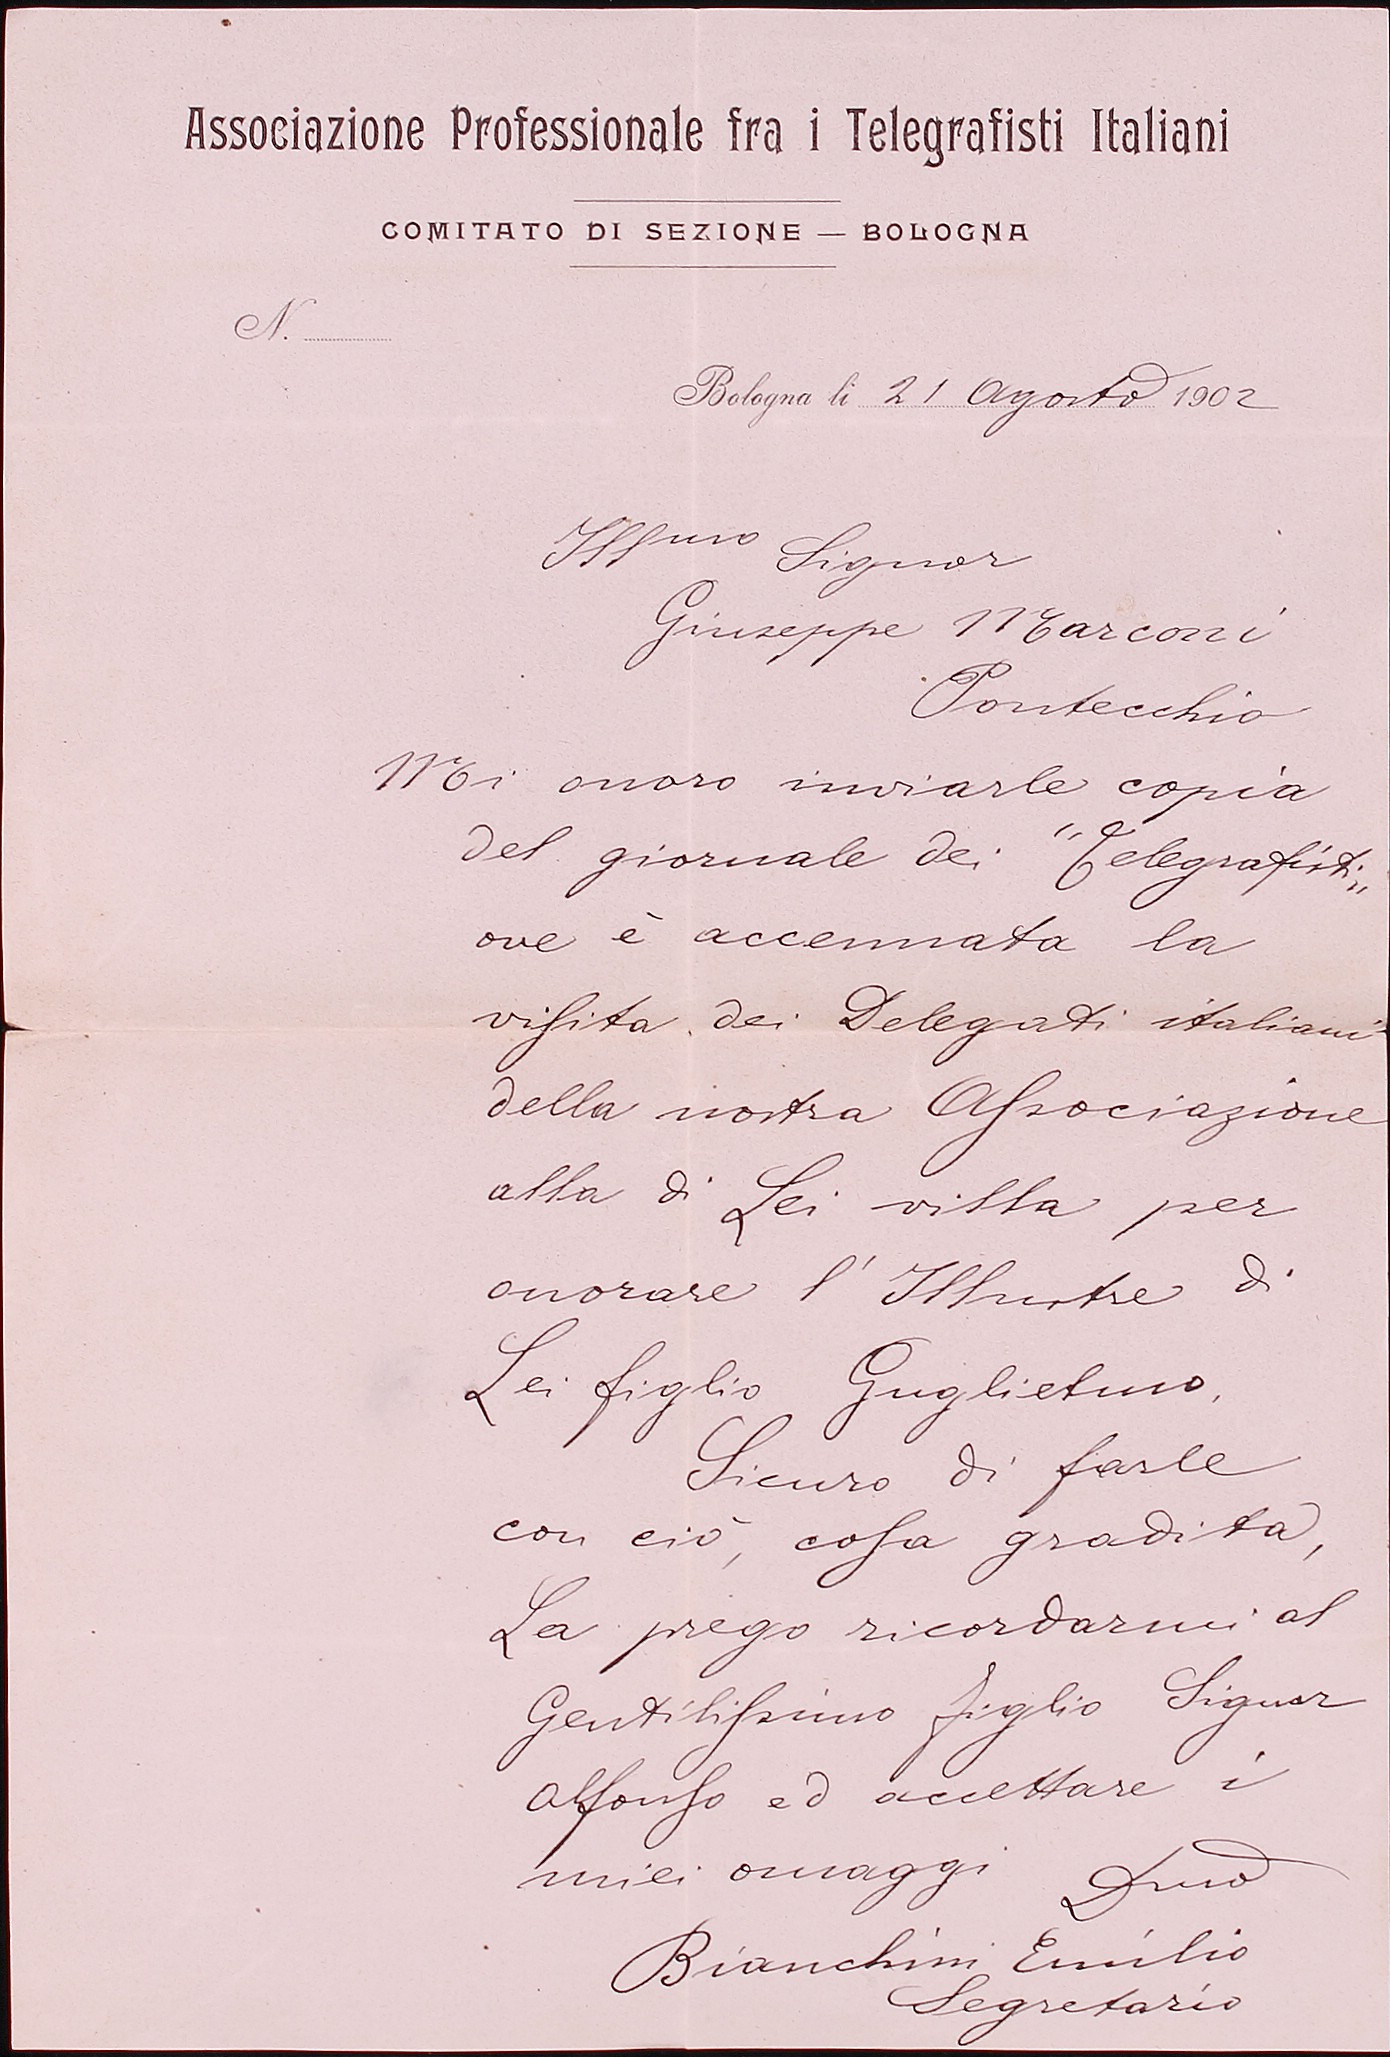 Associazione Professionale fra i Telegrafisti Italiani
COMITATO DI SEZIONE — BOLOGNA
N.
Bologna li 21 Agosto 1902
Illmo Signor
Giuseppe Marconi
Pontecchio
Mi onoro inviarle copia
del giornale dei "Telegrafisti"
ove è accennata la
visita dei Delegati italiani
della nostra Associazione
alla di Lei villa per
onorare l'Illustre di
Lei figlio Guglielmo.
Sicuro di farle
con ciò, cosa gradita,
La prego ricordarmi al
Gentilissimo figlio Signor
Alfonso ed accettare i
miei omaggi Dmo
Bianchini Emilio
Segretario